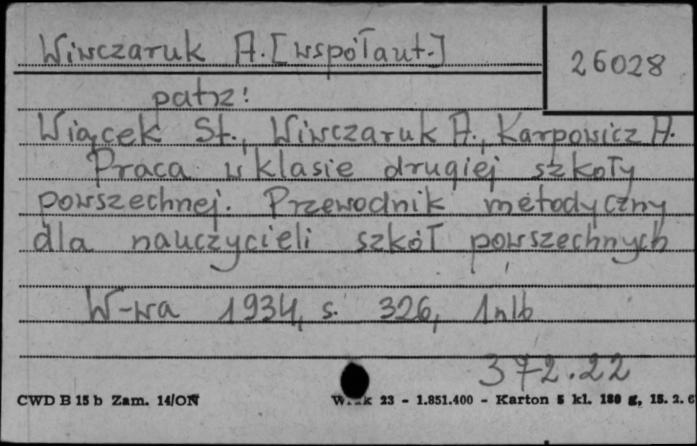 Wiwczaruk A. [współaut.]
26028
patrz:
Wiącek St., Wiwczaruk A., Karpowicz A.
Praca w klasie drugiej szkoły
powszechnej. Przewodnik metodyczny
dla nauczycieli szkół powszechnych
W-wa 1934, s. 326, 1nlb
372.22
CWD B 15 b Zam. 14/ON
23 - 1.851.400 - Karton 5 kl. 180 g, 15. 2. 6